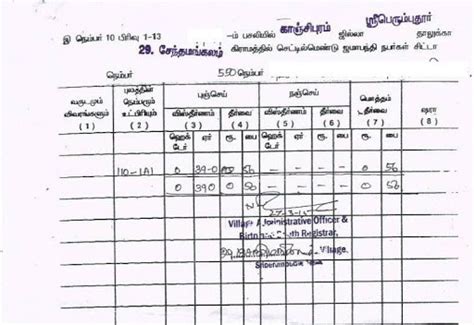 காஞ்சிபுரம் ஸ்ரீபெரும்புதூர்
இ நெம்பர் 10 பிரிவு 1-13 -ம் பசலியில் ஜில்லா தாலுக்கா
29. சேந்தமங்கலம் கிராமத்தில் செட்டில்மெண்டு ஜமாபந்தி நபர்கள் சிட்டா
நெம்பர் 550 நெம்பர்
வருடமும் விவரங்களும் (1) புலத்தின் நெம்பரும் உட்பிரிவும் (2) புஞ்செய் நஞ்செய் மொத்தம் தீர்வை (7) ஷரா (8)
விஸ்தீர்ணம் (3) தீர்வை (4) விஸ்தீர்ணம் (5) தீர்வை (6)
ஹெக்டேர் ஏர் ரூ. பை ஹெக்டேர் ஏர் ரூ. பை ரூ. பை
110-1A1 0 39-0 00 56 0 56
0 390 0 56 0 56
Village Administrative Officer &
Birth Death Registrar,
29, Village,